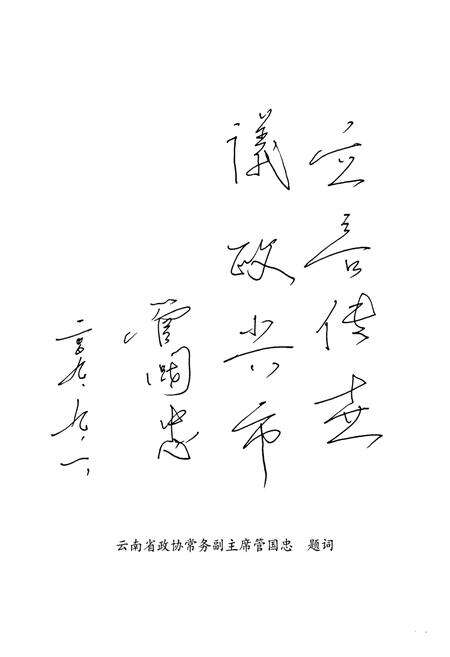 立言传世
議政兴市
管國忠
二〇〇九.九.一.
云南省政协常务副主席管国忠　题词